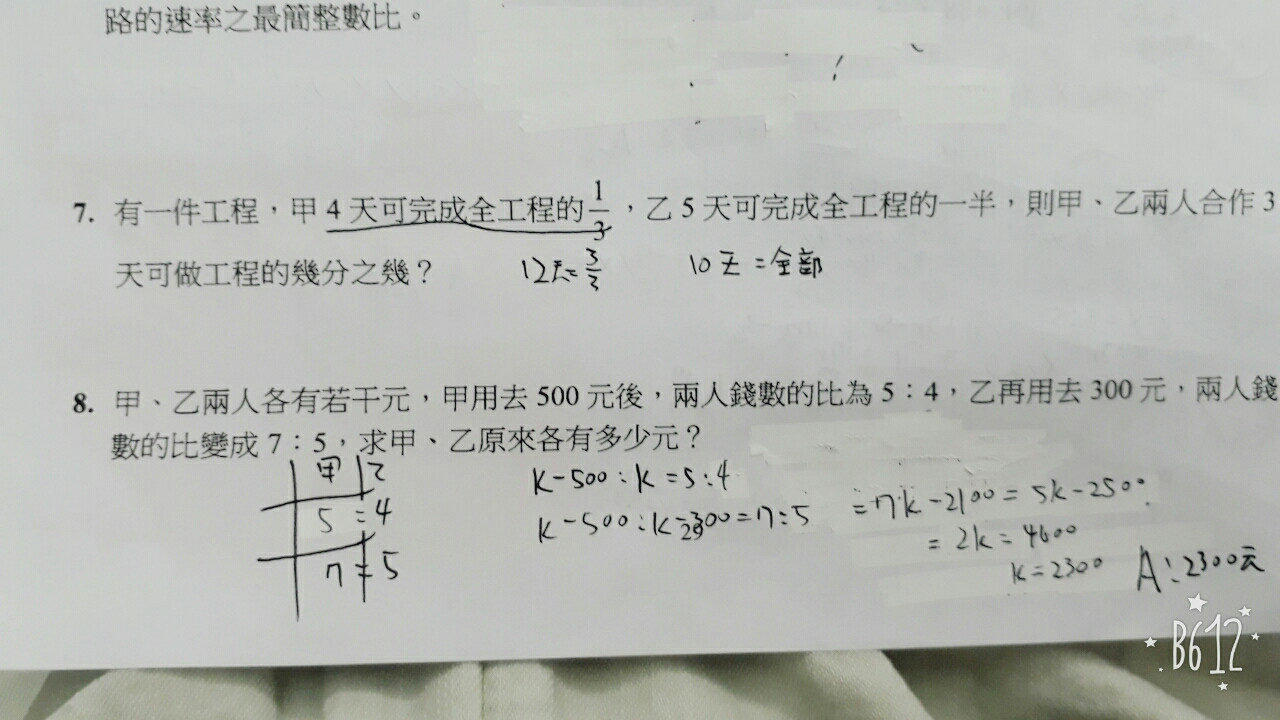 路的速率之最簡整數比。
7. 有一件工程，甲 4 天可完成全工程的 1/3，乙 5 天可完成全工程的一半，則甲、乙兩人合作 3
天可做工程的幾分之幾？
12天=3/3 10天=全部
8. 甲、乙兩人各有若干元，甲用去 500 元後，兩人錢數的比為 5：4，乙再用去 300 元，兩人錢
數的比變成 7：5，求甲、乙原來各有多少元？
甲 乙
5:4
7:5
k-500:k=5:4
k-500:k-300=7:5
=7k-2100=5k-2500
=2k=4600
k=2300
A:2300元
B612